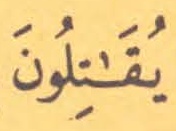 يُقَـٰتِلُونَ